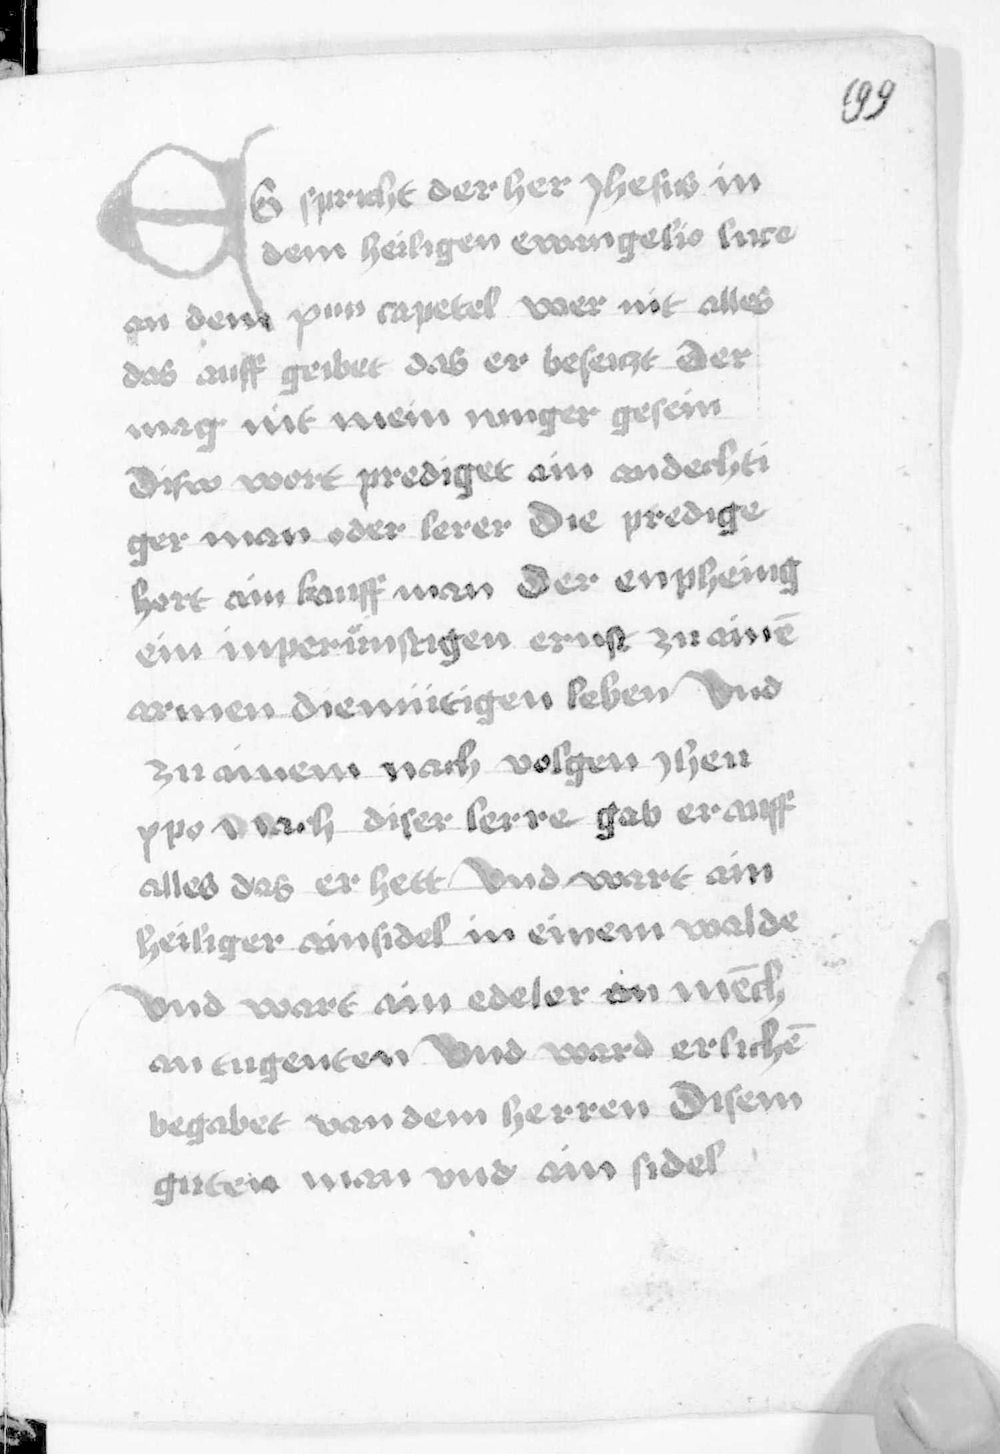 199
ES spricht der her Jhesus in
dem heiligen ewangelio luce
an dem xiiii capetel wer nit alles
das auff geibet das er beseiczt Der
mag nit mein iunger gesein
Disw wort prediget ain andechti
ger man oder lerer Die predige
hort ain kauff man Der enpheing
ein inperünstigen ernst zu ainē
armen diemüitigen leben Vnd
zu ainem nach volgen Jheu
xpo Nach diser lerre gab er auff
alles das er hett Vnd wart ain
heiliger ainsidel in einem walde
Vnd wart ain edeler in mēch
an tugenten Vnd ward erlichē
begabet van dem herren Disem
guten man vnd ain sidel